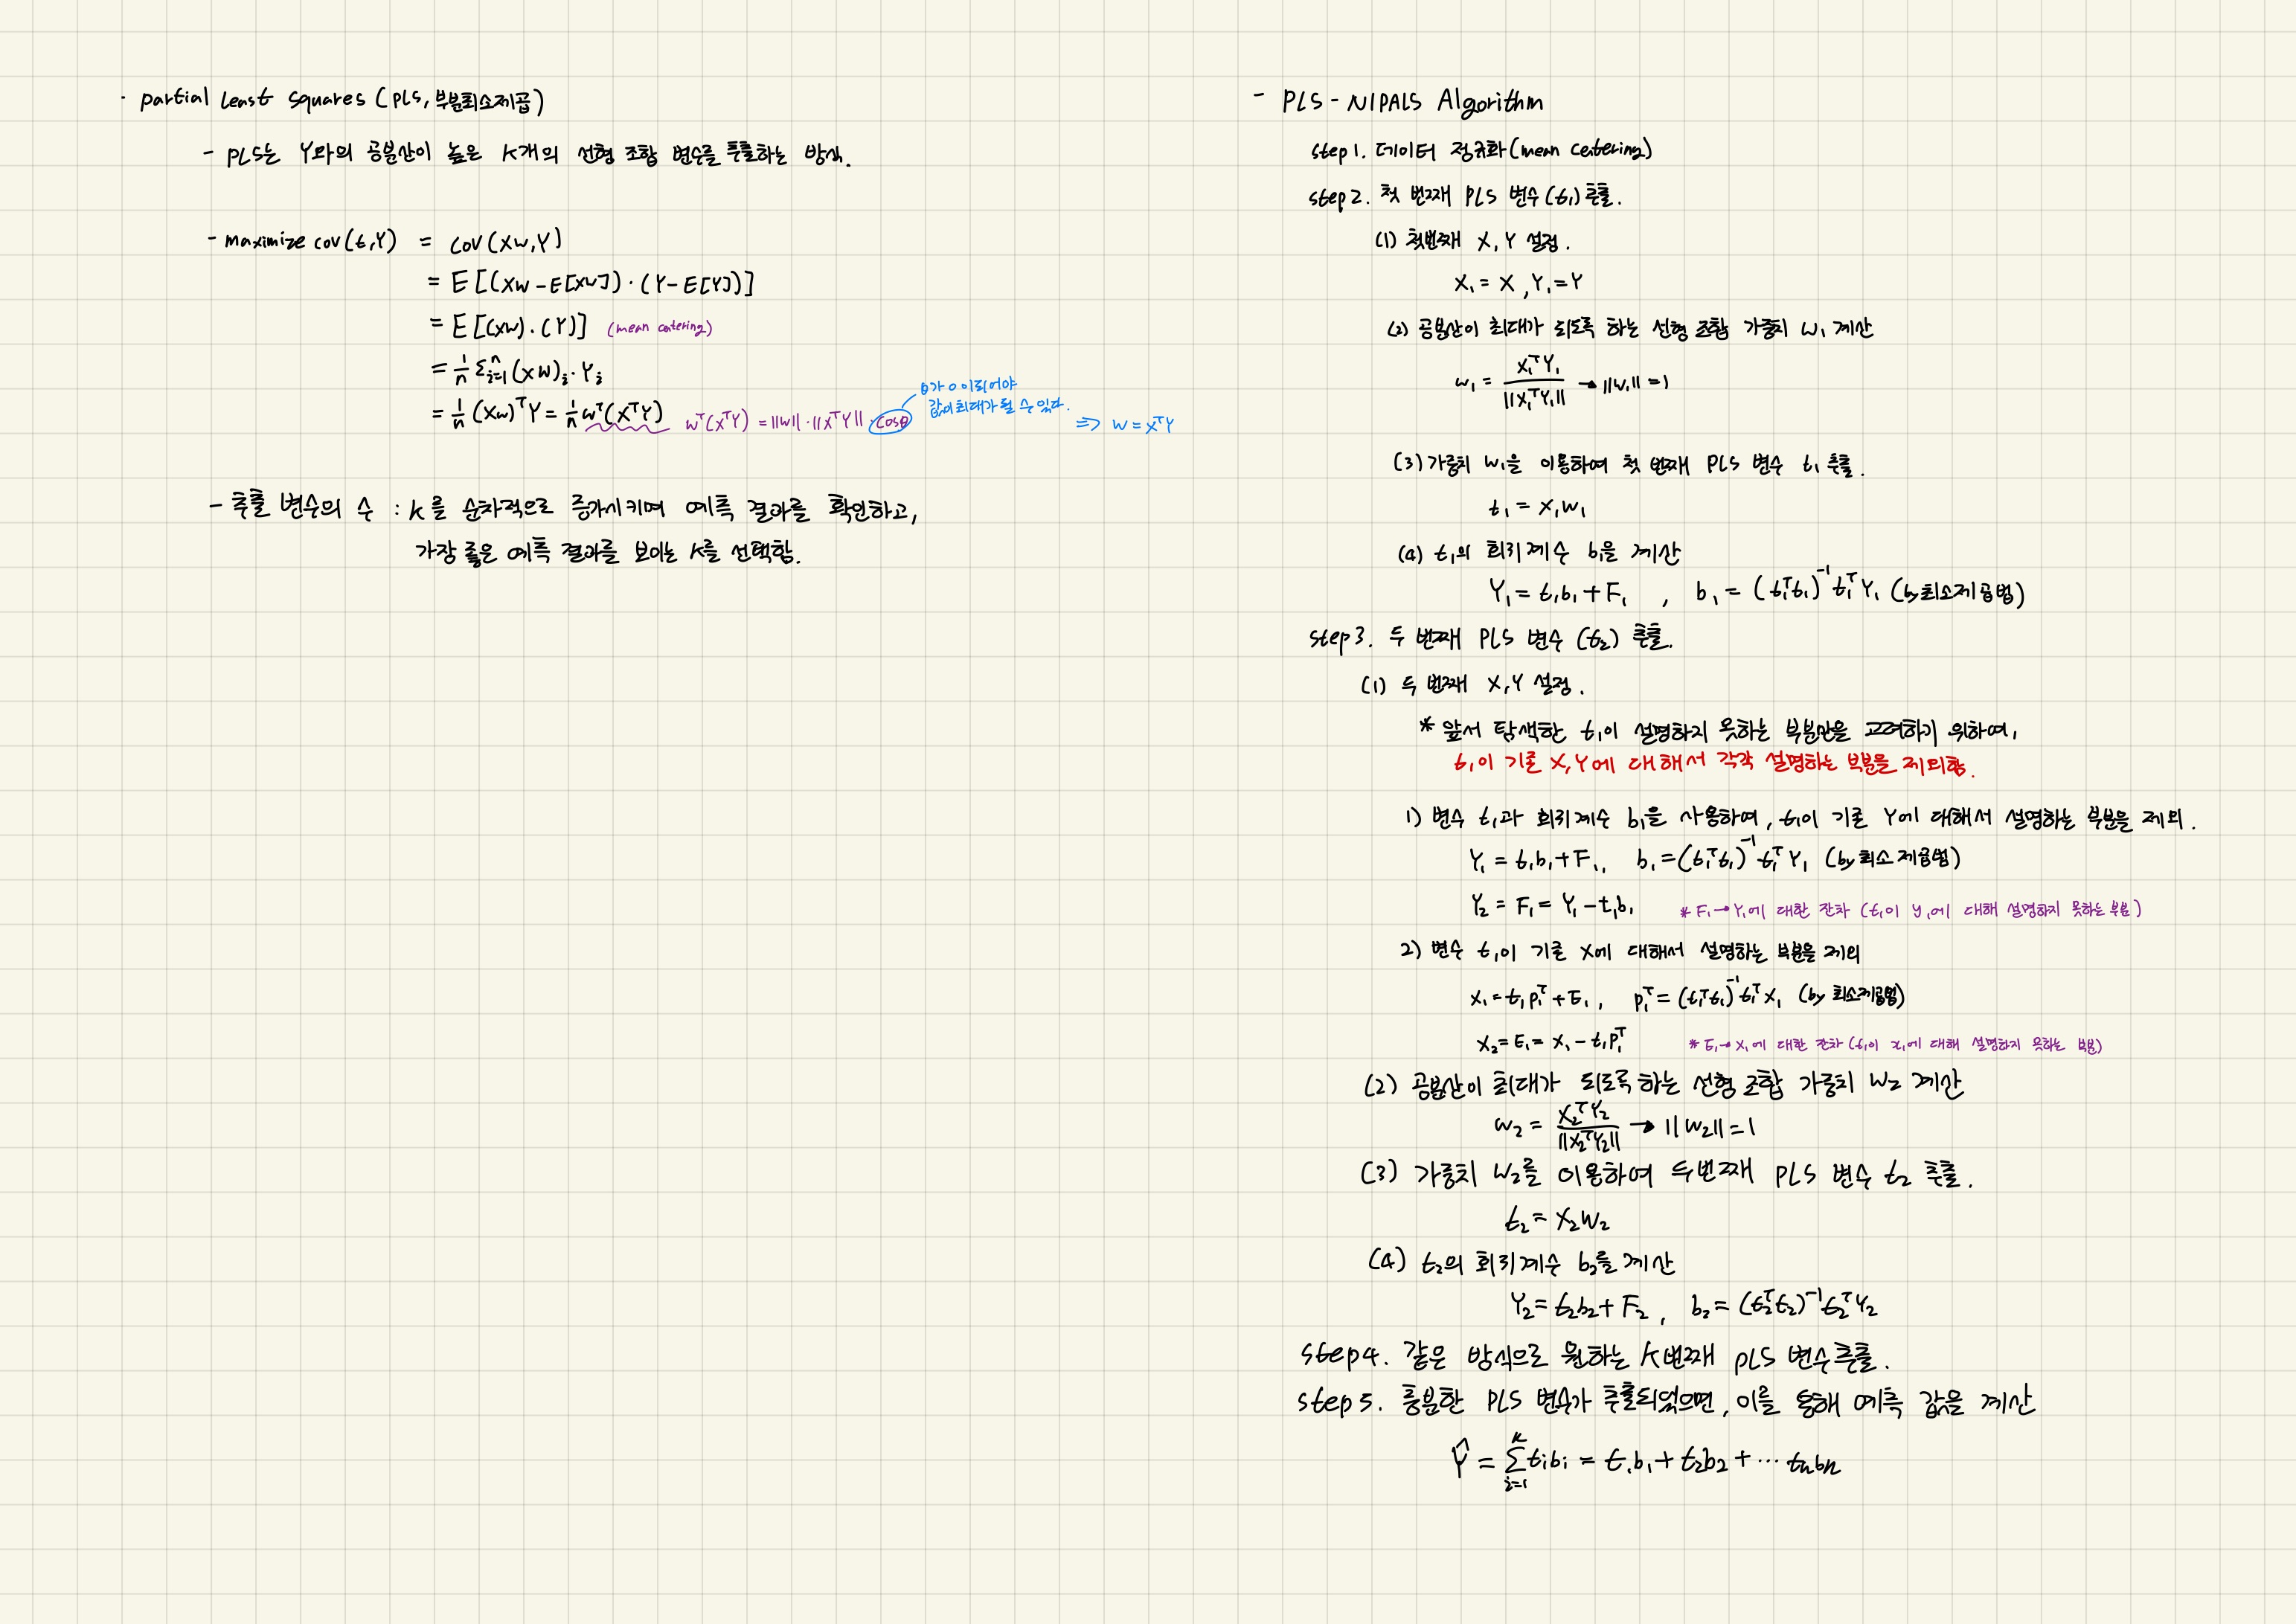 · partial Least Squares (PLS, 부분최소제곱)
- PLS는 Y와의 공분산이 높은 K개의 선형 조합 변수를 추출하는 방식.
- maximize cov(t,Y) = cov(Xw,Y)
= E[(Xw-E[Xw])·(Y-E[Y])]
= E[(Xw)·(Y)] (mean centering)
= 1/n Σⁿᵢ₌₁ (Xw)ᵢ·Yᵢ
= 1/n (Xw)ᵀY = 1/n wᵀ(XᵀY) wᵀ(XᵀY) = ||w||·||XᵀY||·cosθ
θ가 0이 되어야
값이 최대가 될 수 있다.
=> w = XᵀY
- 추출 변수의 수 : K를 순차적으로 증가시키며 예측 결과를 확인하고,
가장 좋은 예측 결과를 보이는 K를 선택함.
- PLS-NIPALS Algorithm
step1. 데이터 정규화(mean centering)
step2. 첫 번째 PLS 변수(t₁) 추출.
(1) 첫번째 X, Y 설정.
X₁ = X, Y₁ = Y
(2) 공분산이 최대가 되도록 하는 선형 조합 가중치 w₁ 계산
w₁ = X₁ᵀY₁ / ||X₁ᵀY₁|| → ||w₁|| = 1
(3) 가중치 w₁을 이용하여 첫 번째 PLS 변수 t₁ 추출.
t₁ = X₁w₁
(4) t₁의 회귀계수 b₁을 계산
Y₁ = t₁b₁ + F₁ , b₁ = (t₁ᵀt₁)⁻¹t₁ᵀY₁ (by 최소제곱법)
step3. 두 번째 PLS 변수 (t₂) 추출.
(1) 두 번째 X, Y 설정.
* 앞서 탐색한 t₁이 설명하지 못하는 부분만을 고려하기 위하여,
t₁이 기존 X,Y에 대해서 각각 설명하는 부분을 제외함.
1) 변수 t₁과 회귀계수 b₁을 사용하여, t₁이 기존 Y에 대해서 설명하는 부분을 제외.
Y₁ = t₁b₁ + F₁, b₁ = (t₁ᵀt₁)⁻¹t₁ᵀY₁ (by 최소제곱법)
Y₂ = F₁ = Y₁ - t₁b₁ * F₁ → Y₁에 대한 잔차 (t₁이 y₁에 대해 설명하지 못하는 부분)
2) 변수 t₁이 기존 X에 대해서 설명하는 부분을 제외
X₁ = t₁p₁ᵀ + E₁, p₁ᵀ = (t₁ᵀt₁)⁻¹t₁ᵀX₁ (by 최소제곱법)
X₂ = E₁ = X₁ - t₁p₁ᵀ * E₁ → X₁에 대한 잔차 (t₁이 x₁에 대해 설명하지 못하는 부분)
(2) 공분산이 최대가 되도록 하는 선형 조합 가중치 w₂ 계산
w₂ = X₂ᵀY₂ / ||X₂ᵀY₂|| → ||w₂|| = 1
(3) 가중치 w₂를 이용하여 두번째 PLS 변수 t₂ 추출.
t₂ = X₂w₂
(4) t₂의 회귀계수 b₂를 계산
Y₂ = t₂b₂ + F₂ , b₂ = (t₂ᵀt₂)⁻¹t₂ᵀY₂
step4. 같은 방식으로 원하는 K번째 PLS 변수 추출.
step5. 충분한 PLS 변수가 추출되었으면, 이를 통해 예측 값을 계산
Ŷ = Σᴷᵢ₌₁ tᵢbᵢ = t₁b₁ + t₂b₂ + ··· tₙbₙ